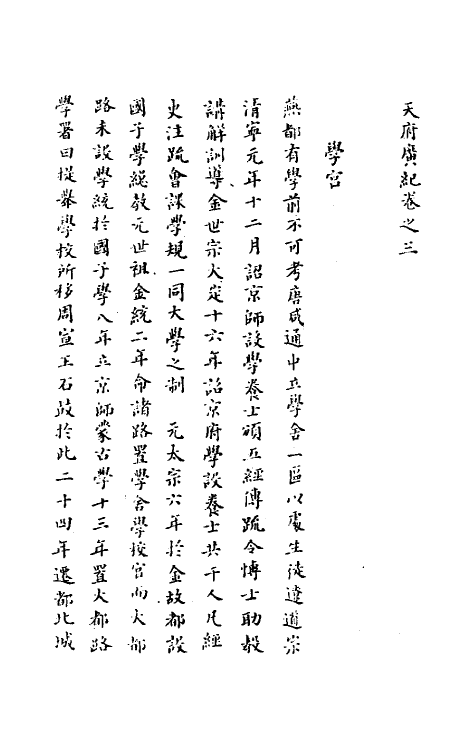 天府廣紀卷之三
學宮
燕都有學前不可考唐咸通中立學舍一區以處生徒遼道宗
清寧元年十二月詔京師設學養士頒五經傳疏令博士助教
講解訓導金世宗大定十六年詔京府學設養士共千人凡經
史注疏會課學規一同大學之制　元太宗六年於金故都設
國子學總教元世祖金統二年命諸路置學舍學校官而大都
路未設學統於國子學八年立京師蒙古學十三年置大都路
學署曰提舉學校所移周宣王石鼓於此二十四年遷都北城